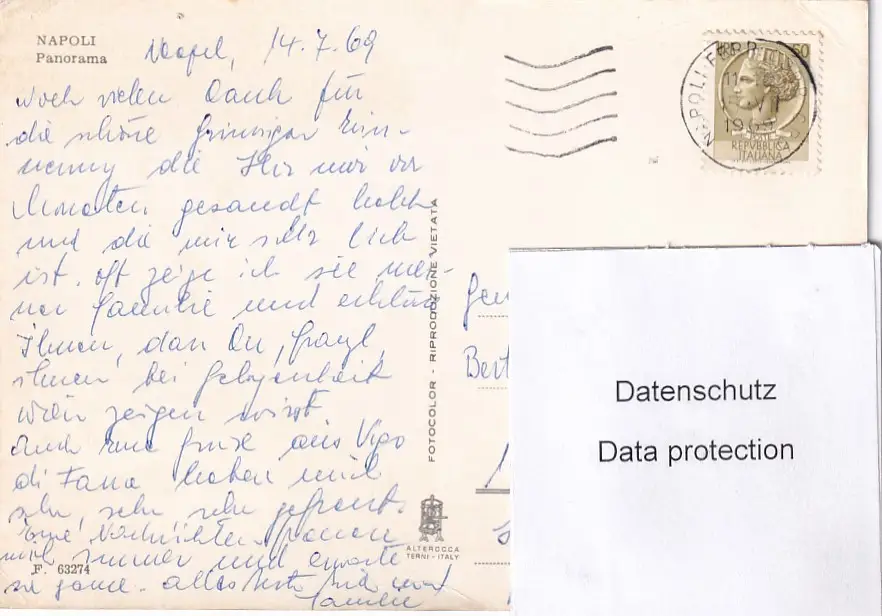 NAPOLI
Panorama
Neapel, 14.7.69
Noch vielen Dank für
die schöne Grinziger Erin-
nerung die Ihr mir vor
Monaten gesandt habt
und die mir sehr lieb
ist. Oft zeige ich sie mei-
ner Familie und erkläre
Ihnen, dass Du, Franzl,
Ihnen bei Gelegenheit
Wien zeigen wirst
Auch Eure Grüsse aus Vigo
di Fassa haben mich
sehr, sehr, sehr gefreut.
Eure Nachrichten freuen
mich immer und erwarte
sie gerne. Alles
Familie
F. 63274
FOTOCOLOR - RIPRODUZIONE VIETATA
ALTEROCCA
TERNI - ITALY
NAPOLI FERR
1969
REPVBBLICA
ITALIANA
Bert
Datenschutz
Data protection